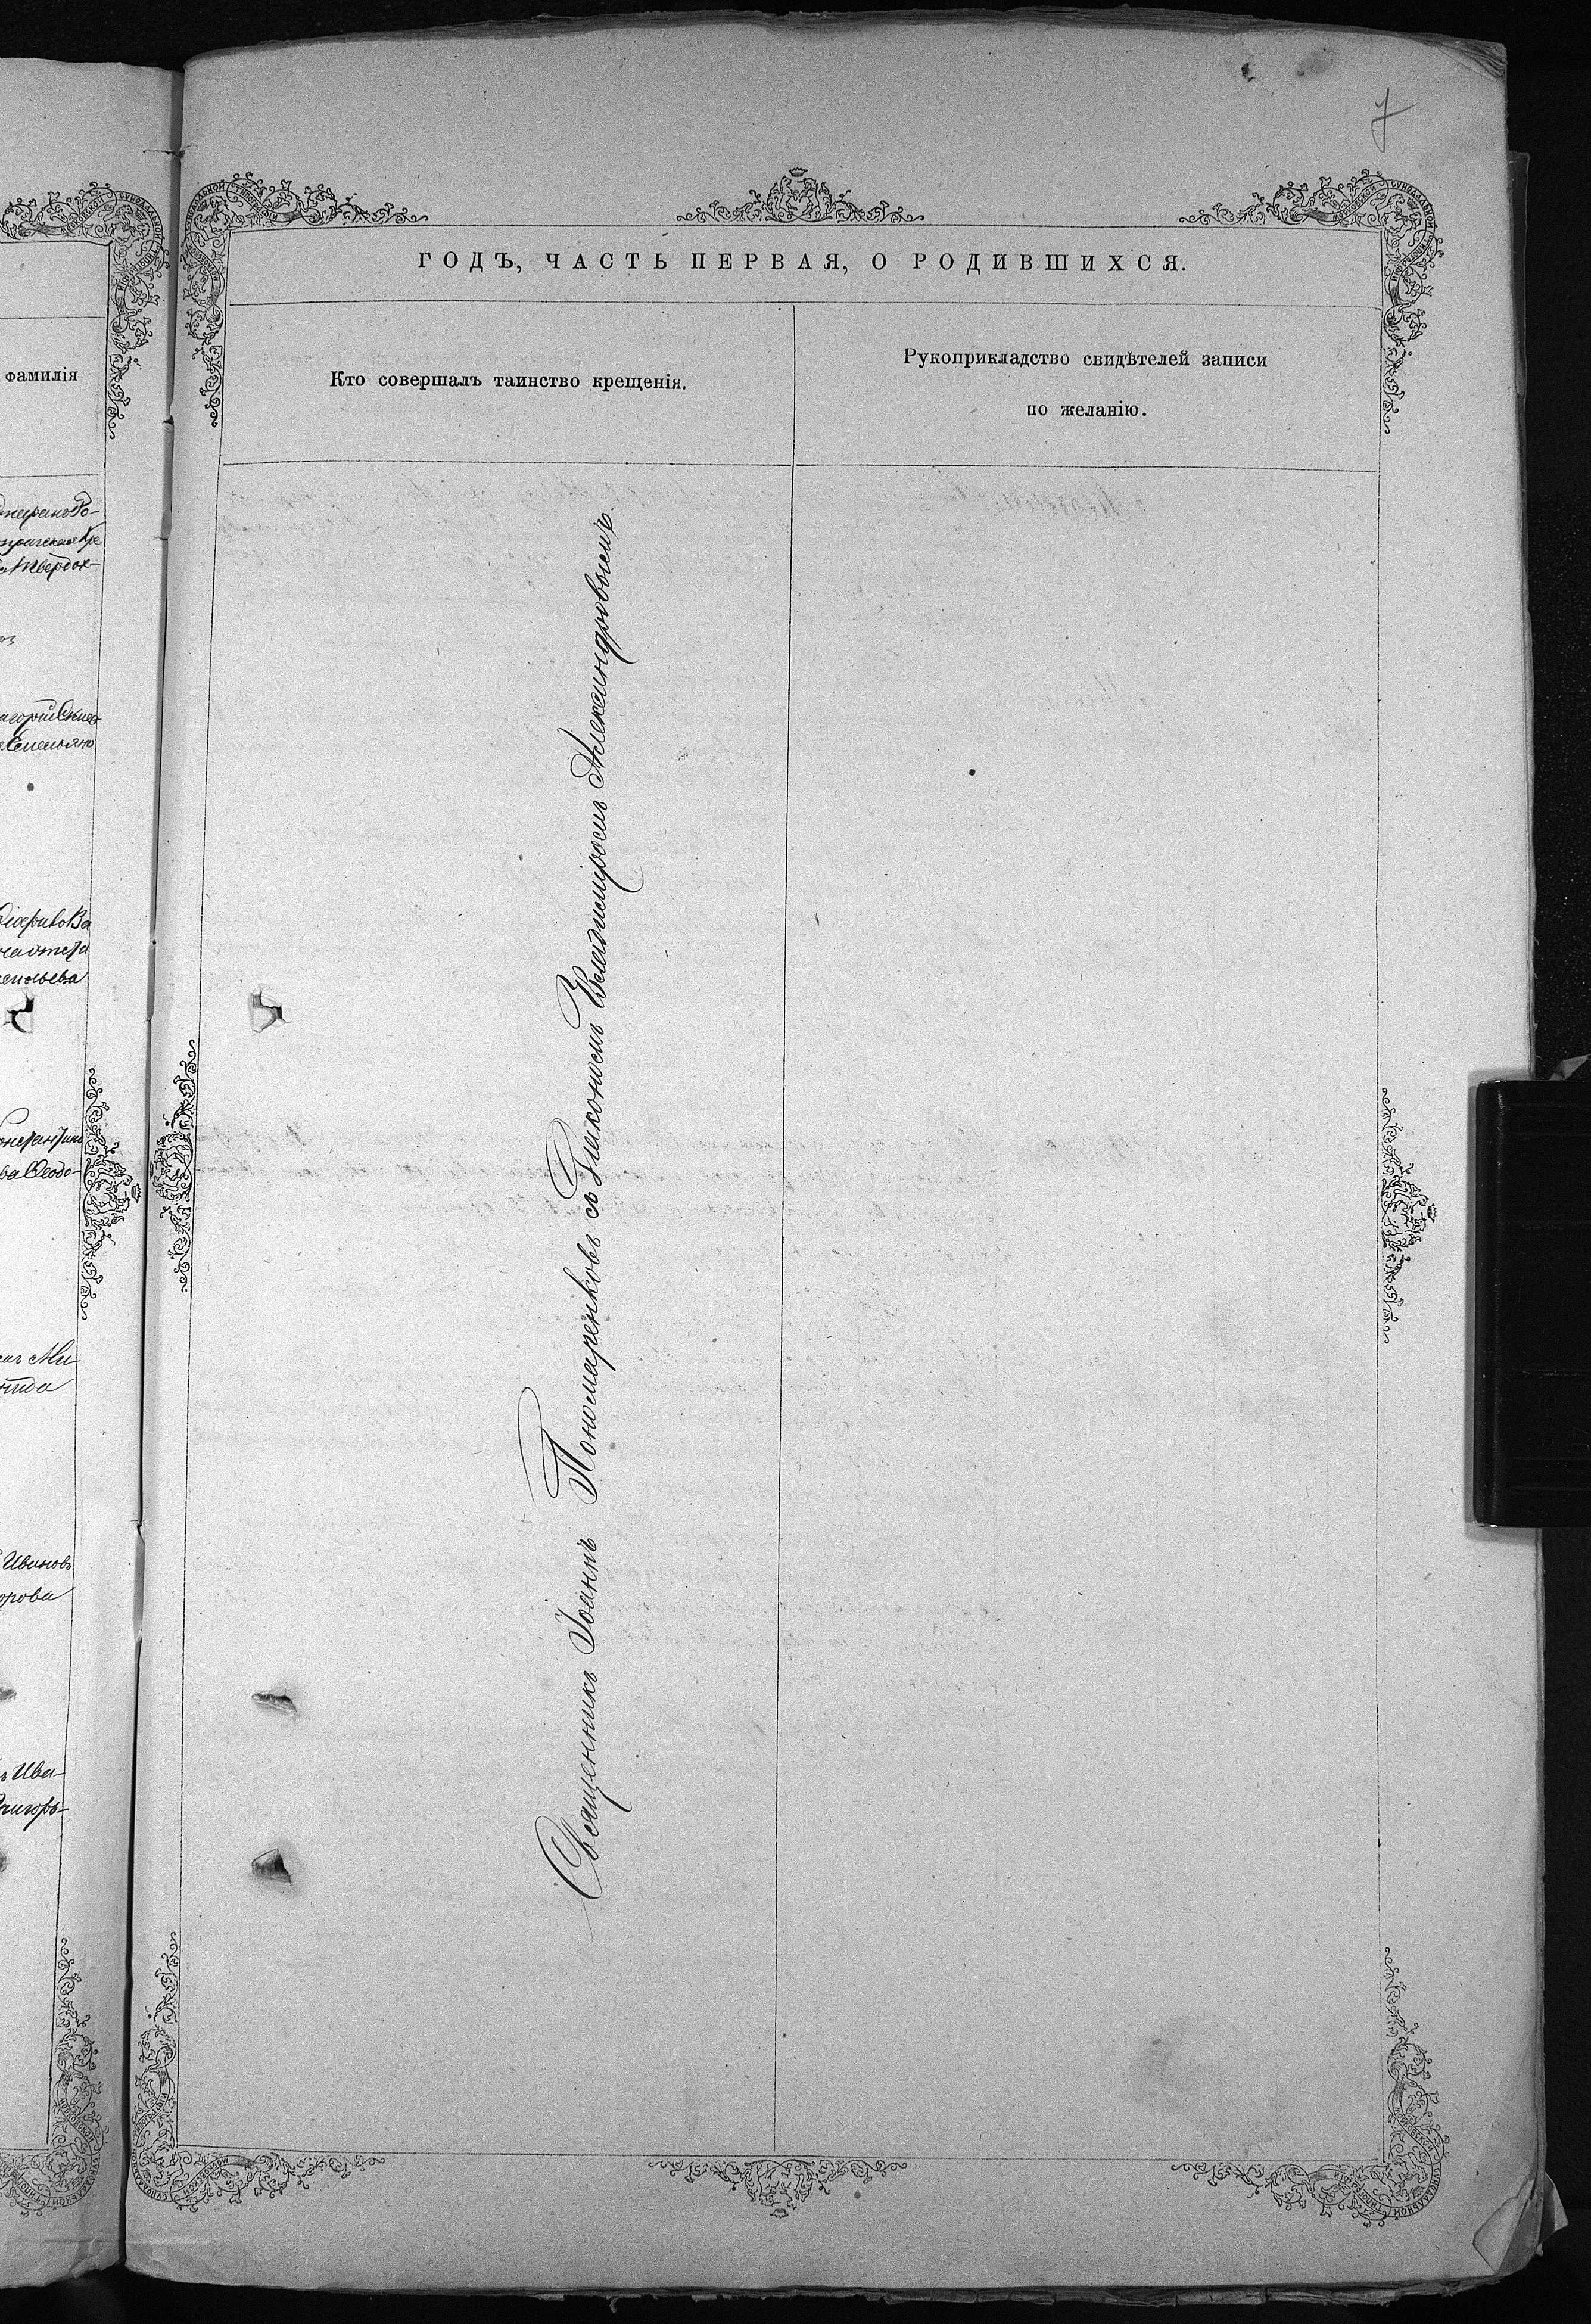 7
ГОДЪ, ЧАСТЬ ПЕРВАЯ, О РОДИВШИХСЯ.
фамилія
Кто совершалъ таинство крещенія.
Рукоприкладство свидѣтелей записи
по желанію.
Священникъ Іоаннъ Пономаренковъ съ Діакономъ Владимиромъ Александровымъ.
Ивановъ